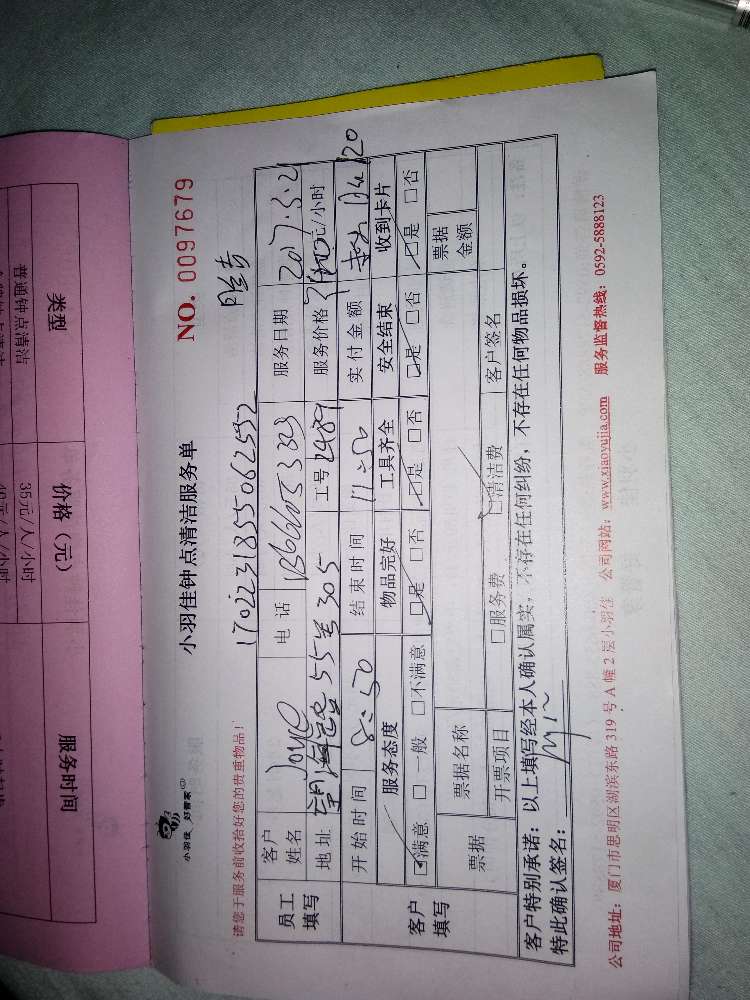 小羽佳 好管家
小羽佳钟点清洁服务单
NO. 0097679
请您于服务前收拾好您的贵重物品！
1702231855062552
员工填写
客户姓名 Joye 电话 服务日期 2017.3.21
地址 55号305 工号 2489 服务价格 元/小时
客户填写
开始时间 8:50 结束时间 11:50 实付金额
服务态度 物品完好 工具齐全 安全结束 收到卡片
☑满意 □一般 □不满意 □是 □否 □是 □否 □是 □否 □是 □否
票据 票据名称 票据金额
开票项目 □服务费 □清洁费 客户签名
客户特别承诺：以上填写经本人确认属实，不存在任何纠纷，不存在任何物品损坏。
特此确认签名：
公司地址：厦门市思明区湖滨东路 319 号 A 幢 2 层小羽佳 公司网站：www.xiaoyujia.com 服务监督热线：0592-5888123
类型 价格（元） 服务时间
普通钟点清洁 35元/人/小时